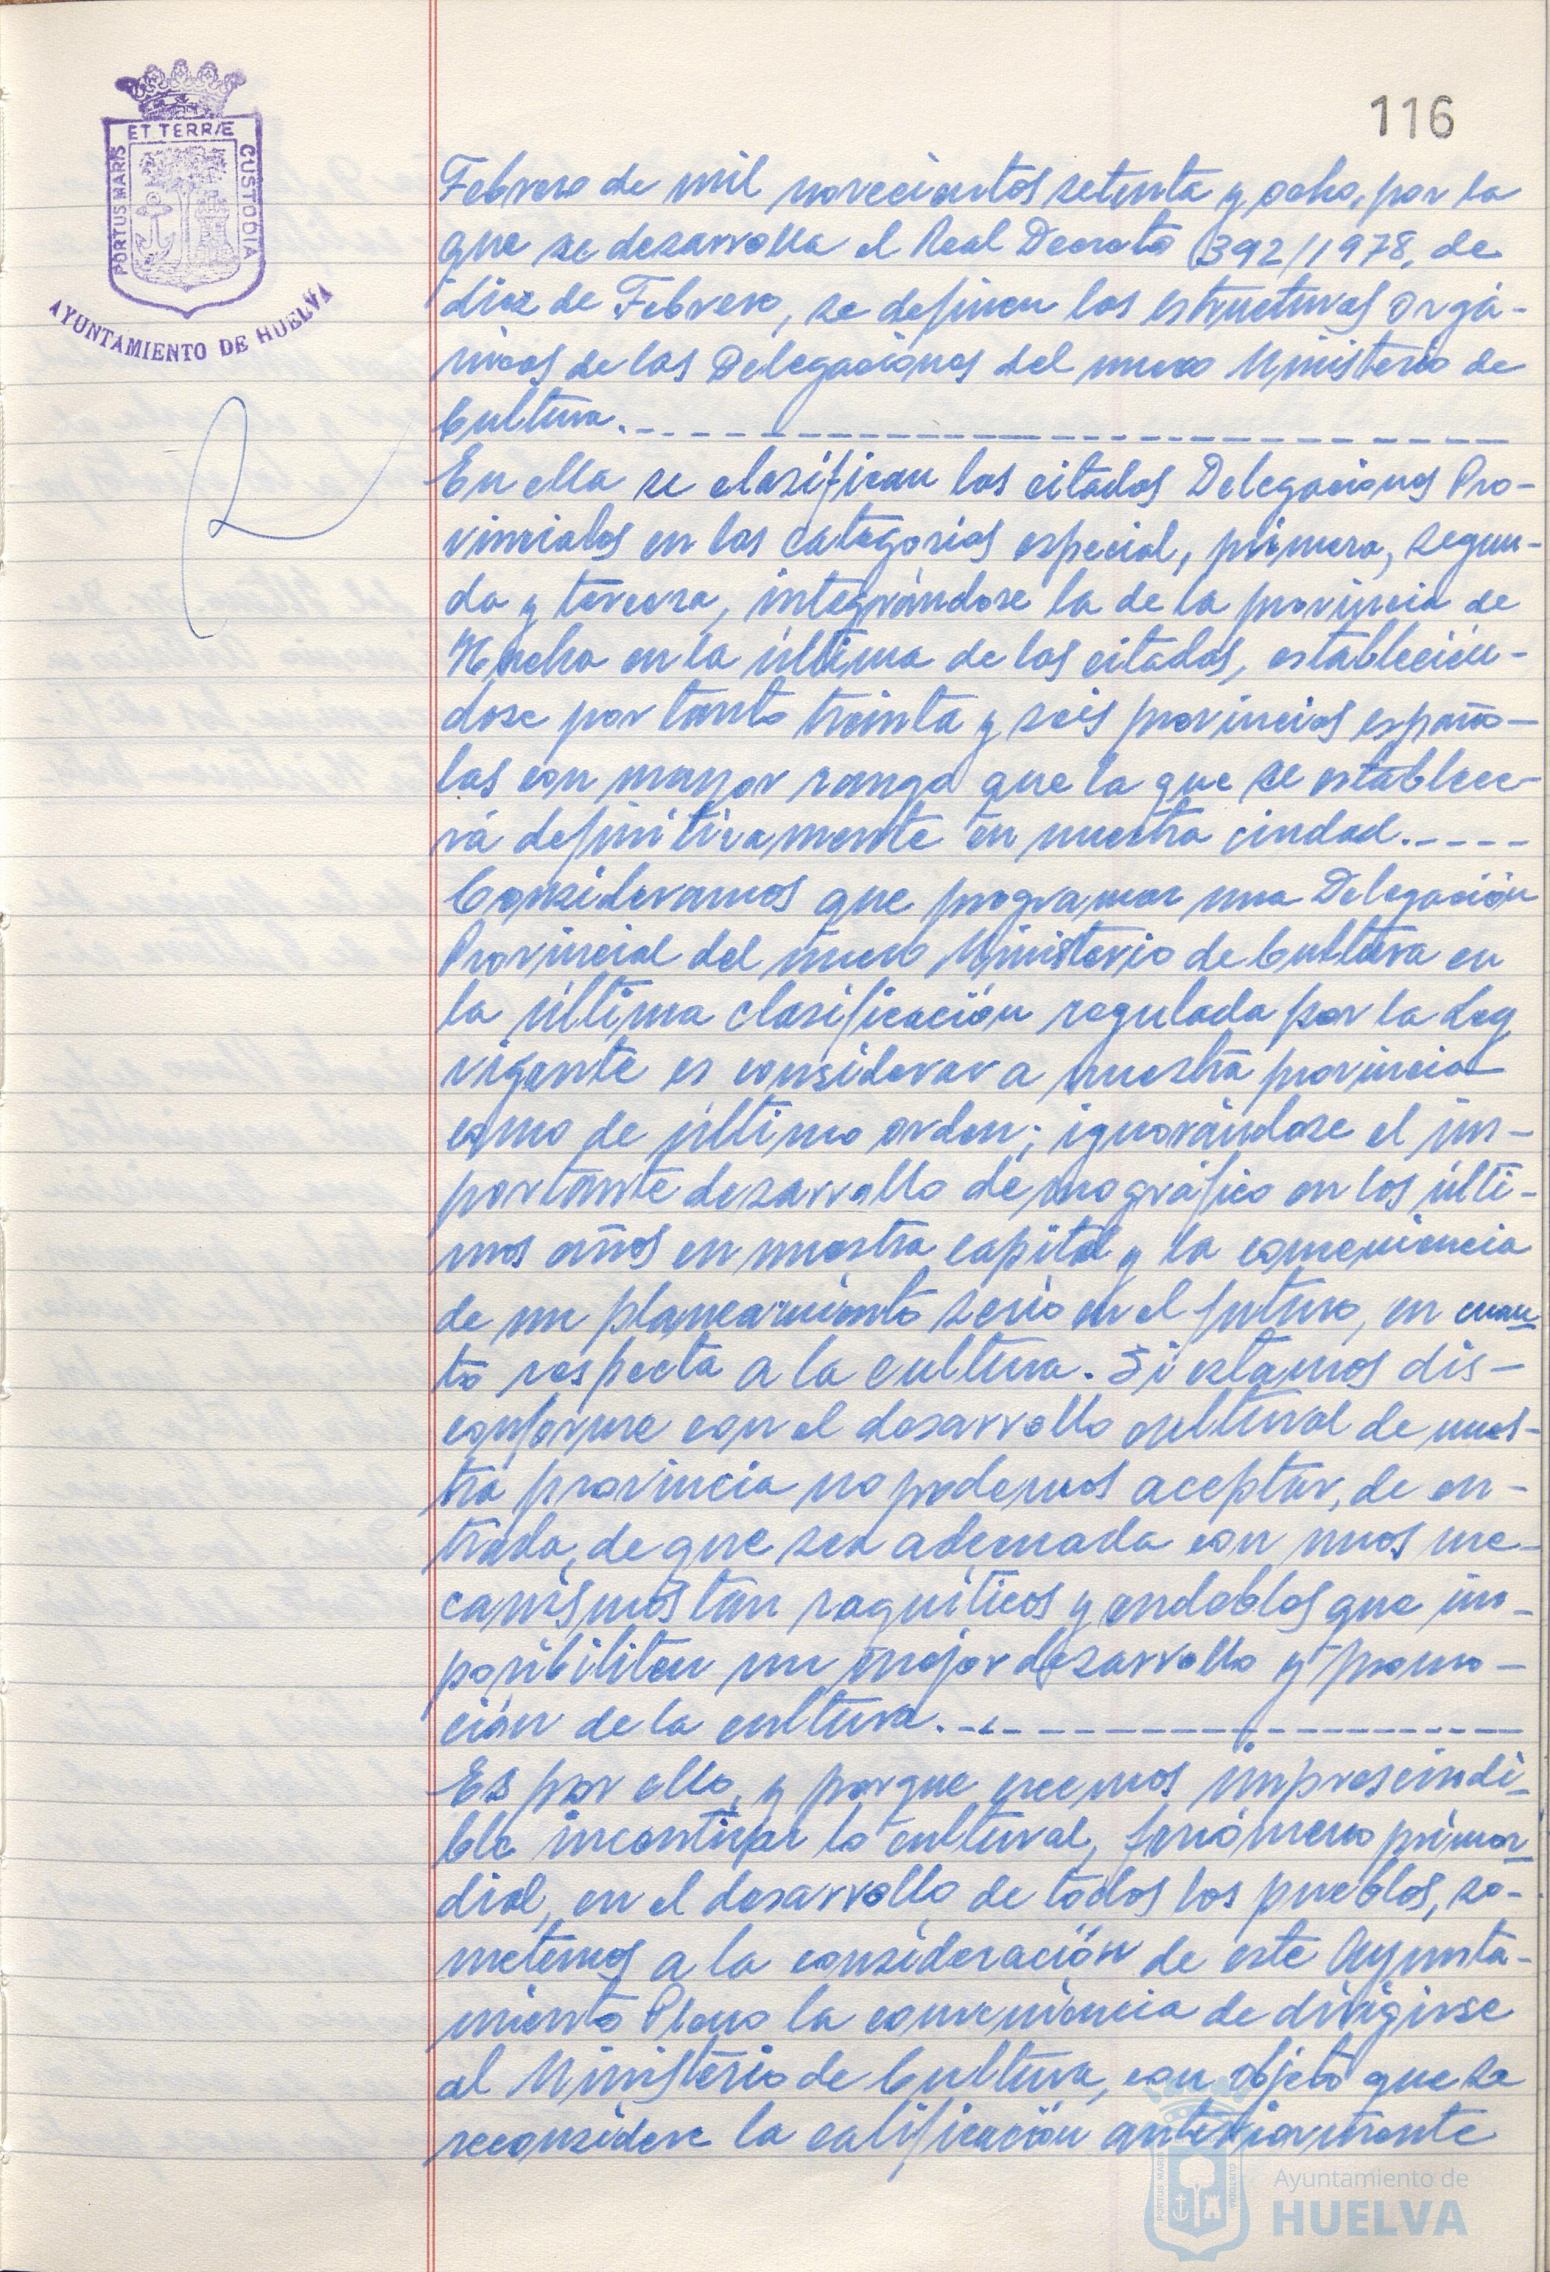 116
ET TERRÆ
PORTUS MARIS
CUSTODIA
AYUNTAMIENTO DE HUELVA
Febrero de mil novecientos setenta y ocho, por la
que se desarrolla el Real Decreto 1392/1978, de
diez de Febrero, se definen las estructuras orgá-
nicas de las Delegaciones del nuevo Ministerio de
Cultura.
En ella se clasifican las citadas Delegaciones Pro-
vinciales en las categorías especial, primera, segun-
da y tercera, integrándose la de la provincia de
Huelva en la última de las citadas, establecién-
dose por tanto treinta y seis provincias españo-
las con mayor rango que la que se establece-
rá definitivamente en nuestra ciudad.
Consideramos que programar una Delegación
Provincial del nuevo Ministerio de Cultura en
la última clasificación regulada por la Ley
vigente es considerar a nuestra provincia
como de último orden; ignorándose el im-
portante desarrollo demográfico en los últi-
mos años en nuestra capital y la conveniencia
de un planeamiento serio en el futuro, en cuan-
to respecta a la cultura. Si estamos dis-
conforme con el desarrollo cultural de nues-
tra provincia no podemos aceptar, de en-
trada, de que sea ademada con unos me-
canismos tan raquíticos y endebles que im-
posibiliten un mejor desarrollo y promo-
ción de la cultura.
Es por ello, y porque creemos imprescindi-
ble incentivar lo cultural, fenómeno primor-
dial, en el desarrollo de todos los pueblos, so-
metemos a la consideración de este Ayunta-
miento Pleno la conveniencia de dirigirse
al Ministerio de Cultura, con objeto que se
reconsidere la calificación anteriormente
PORTUS MARIS
CUSTODIA
Ayuntamiento de
HUELVA